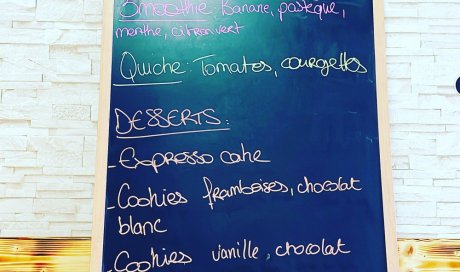 Smoothie: Banane, pastèque,
menthe, citron vert
Quiche: Tomates, courgettes
DESSERTS:
- Expresso cake
- Cookies framboises, chocolat
blanc
- Cookies vanille, chocolat